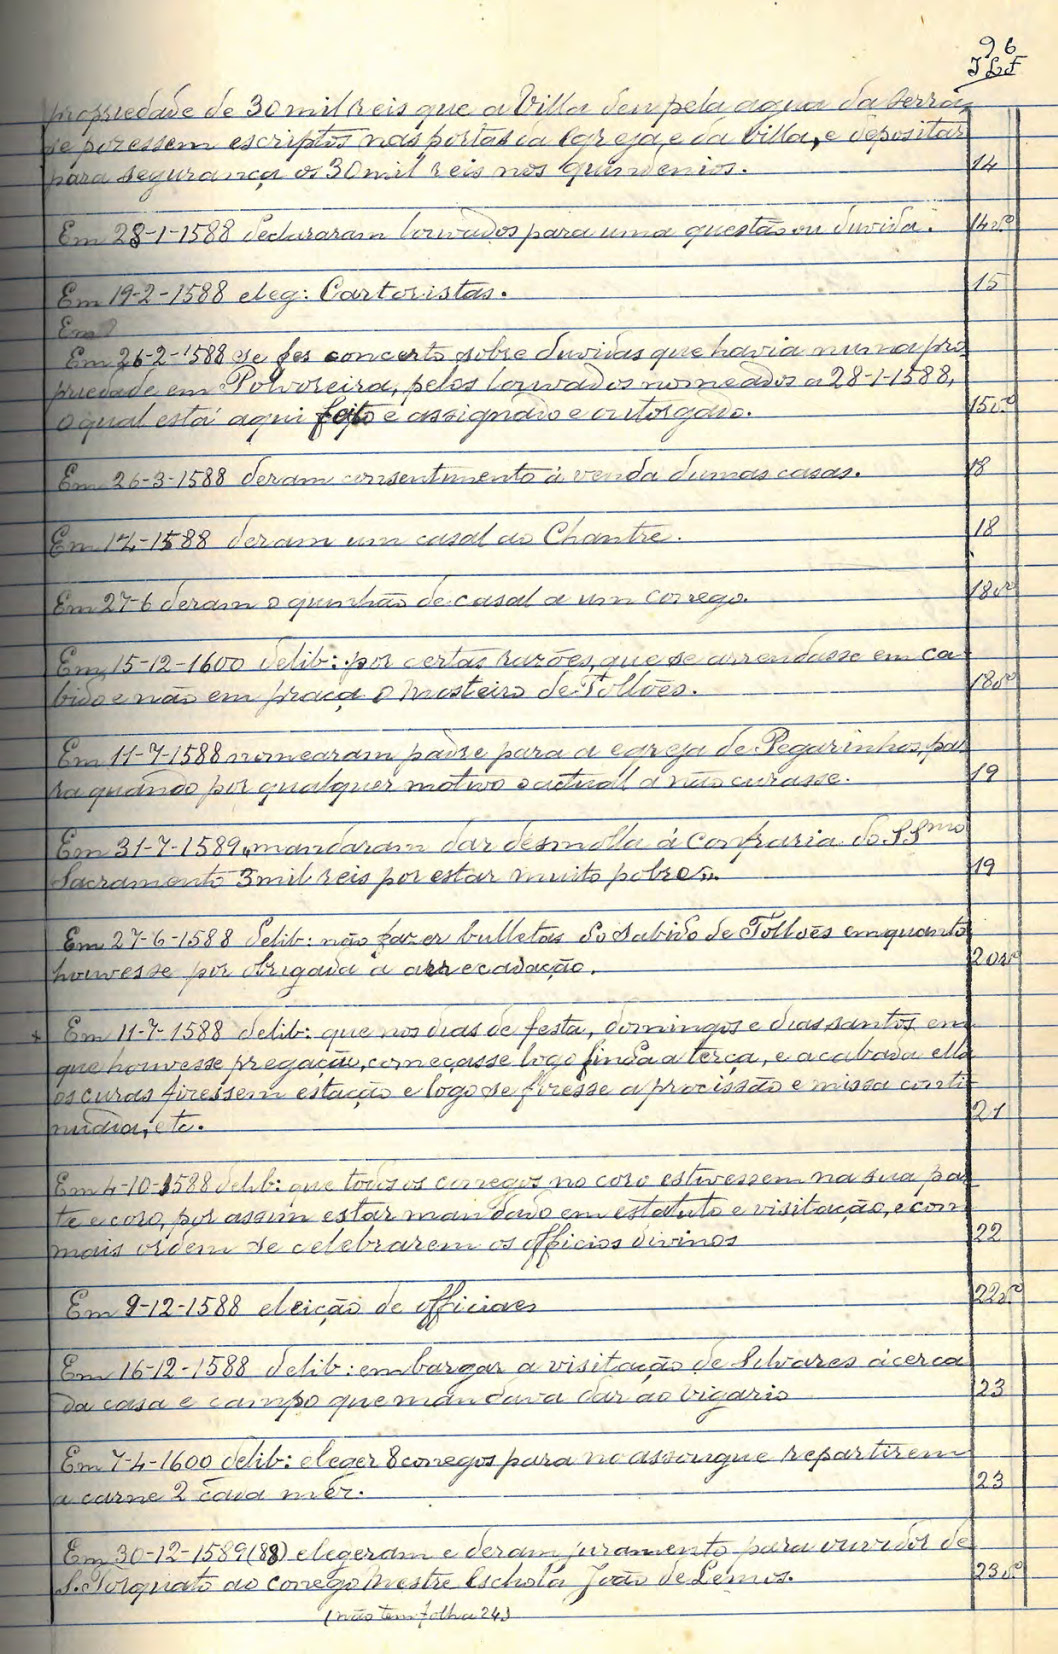 96
JLF
propriedade de 30 mil reis que a Villa deu pela agua da Serra
se pozessem escriptos nas portas da Egreja, e da Villa, e depositar
para segurança os 30 mil reis nos quindenios. 14
Em 28-1-1588 declararam louvados para uma questão ou duvida. 14vº
Em 19-2-1588 eleg: Cartoristas. 15
Em
Em 26-2-1588 se fes concerto sobre duvidas que havia numa pro
priedade em Polvoreira, pelos louvados nomeados a 28-1-1588,
o qual está aqui feito e assignado e outorgado. 15vº
Em 26-3-1588 deram consentimento á venda dumas casas. 18
Em 12-1588 deram um casal ao Chantre. 18
Em 27-6 deram o quinhão de casal a um conego. 18vº
Em 15-12-1600 delib: por certas razões, que se arrendasse em ca
bido e não em praça o Mosteiro de Tollões. 18vº
Em 11-7-1588 nomearam padre para a egreja de Pegarinhos, pa
ra quando por qualquer motivo o actual a não curasse. 19
Em 31-7-1589 "mandaram dar desmolla á Confraria do SSmo
Sacramento 3 mil reis por estar muito pobre". 19
Em 27-6-1588 delib: não fazer bulletas do sabido de Tollões emquanto
houvesse por obrigada a arrecadação. 20vº
* Em 11-7-1588 delib: que nos dias de festa, domingos e dias santos em
que houvesse pregação, começasse logo finda a terça, e acabada ella
os curas fizessem estação e logo se fizesse a procissão e missa conti
nuada, etc. 21
Em 4-10-1588 delib: que todos os conegos no coro estivessem na sua par
te e coro, por assim estar mandado em estatuto e visitação, e com
mais ordem se celebrarem os officios divinos 22
Em 9-12-1588 eleição de officiaes 22vº
Em 16-12-1588 delib: embargar a visitação de Silvares ácerca
da casa e campo que mandava dar ao vigario 23
Em 7-4-1600 delib: eleger 8 conegos para no assougue repartirem
a carne 2 cada mêz. 23
Em 30-12-1589 (88) elegeram e deram juramento para ouvidor de
S. Torquato ao conego Mestre Eschola João de Lemos. 23vº
(não tem folha 24)